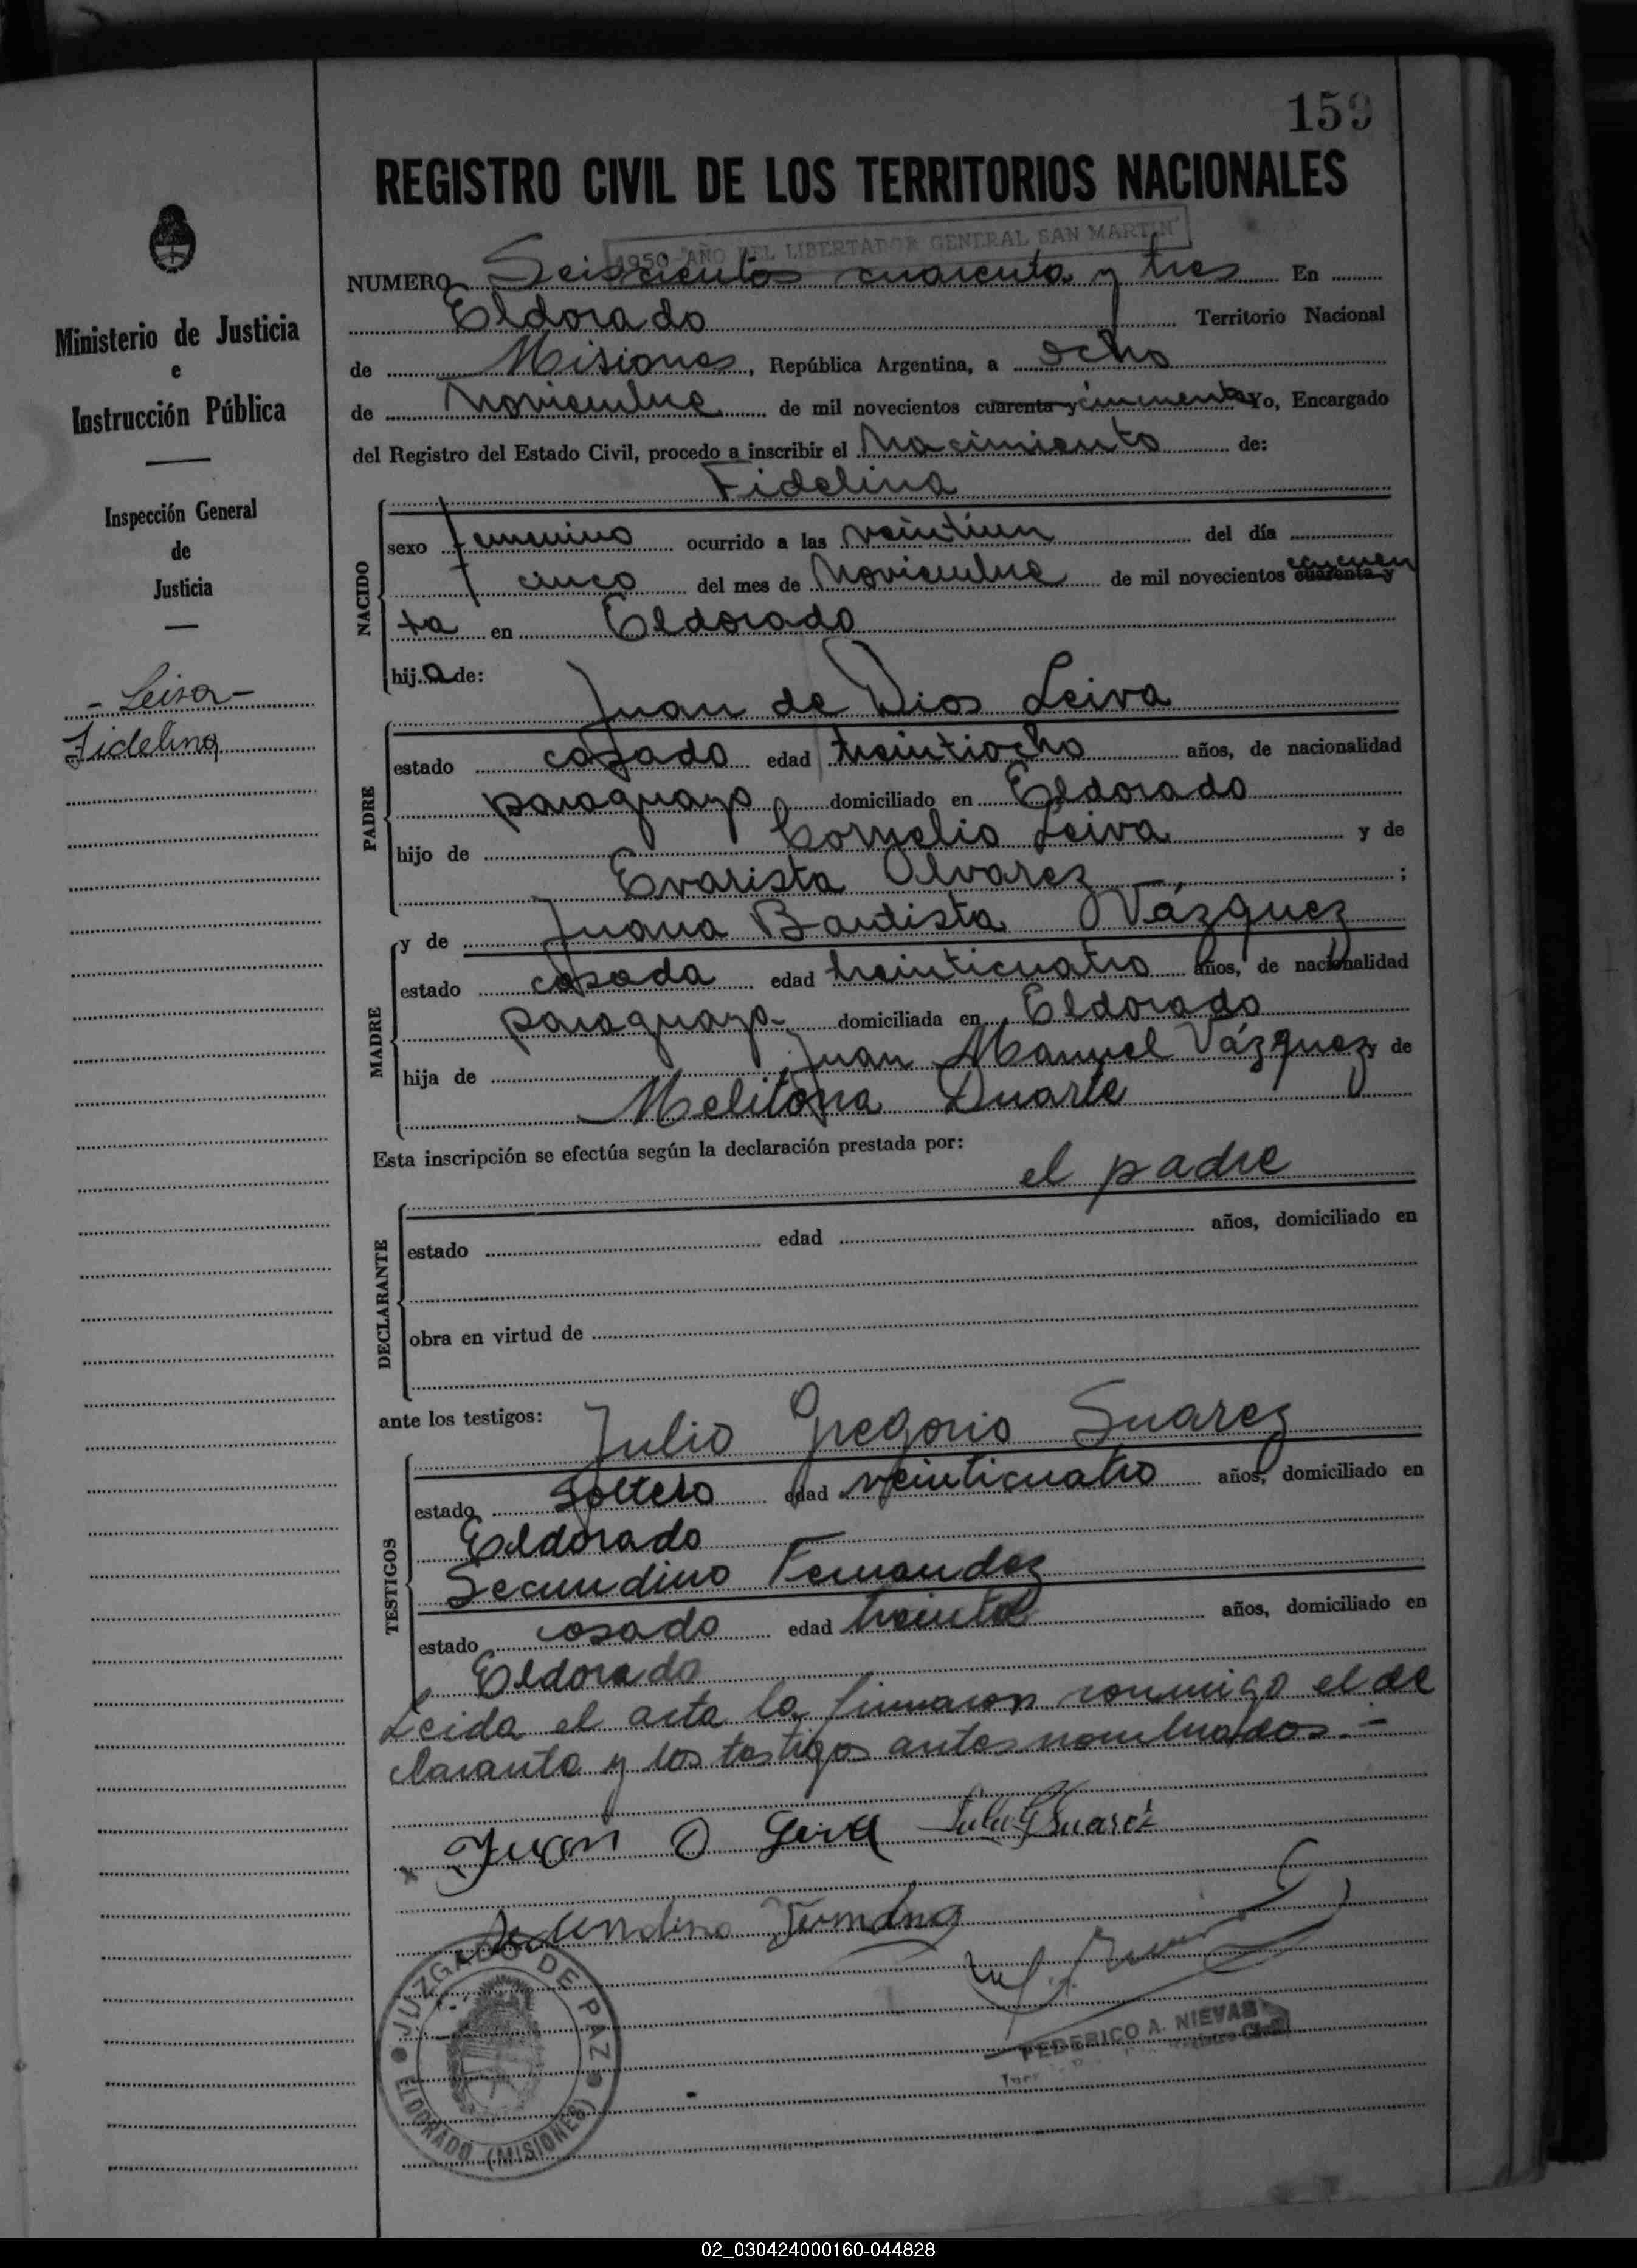 159
REGISTRO CIVIL DE LOS TERRITORIOS NACIONALES
1950 - AÑO DEL LIBERTADOR GENERAL SAN MARTIN
Ministerio de Justicia
e
Instrucción Pública
Inspección General
de
Justicia
- Leiva -
Fidelina
NUMERO Seiscientos cuarenta y tres En
Eldorado Territorio Nacional
de Misiones, República Argentina, a ocho
de Noviembre de mil novecientos cuarenta y cincuenta Yo, Encargado
del Registro del Estado Civil, procedo a inscribir el Nacimiento de:
Fidelina
NACIDO
sexo femenino ocurrido a las veintiun del día
cinco del mes de Noviembre de mil novecientos cuarenta y cincuen
ta en Eldorado
hija de:
Juan de Dios Leiva
PADRE
estado casado edad treintiocho años, de nacionalidad
paraguayo domiciliado en Eldorado
hijo de Cornelio Leiva y de
Evarista Alvarez ;
y de Juana Bautista Vázquez
MADRE
estado casada edad treinticuatro años, de nacionalidad
paraguaya domiciliada en Eldorado
hija de Juan Manuel Vázquez y de
Melitona Duarte
Esta inscripción se efectúa según la declaración prestada por:
el padre
DECLARANTE
estado edad años, domiciliado en
obra en virtud de
ante los testigos:
Julio Gregorio Suarez
TESTIGOS
estado soltero edad veinticuatro años, domiciliado en
Eldorado
Secundino Fernandez
estado casado edad treinta años, domiciliado en
Eldorado
Leida el acta la firmaron conmigo el de
clarante y los testigos antes nombrados.-
x Juan D Leiva Julio G Suarez
Secundino Fernandez
FEDERICO A. NIEVAS
JUZGADO DE PAZ
ELDORADO (MISIONES)
02_030424000160-044828